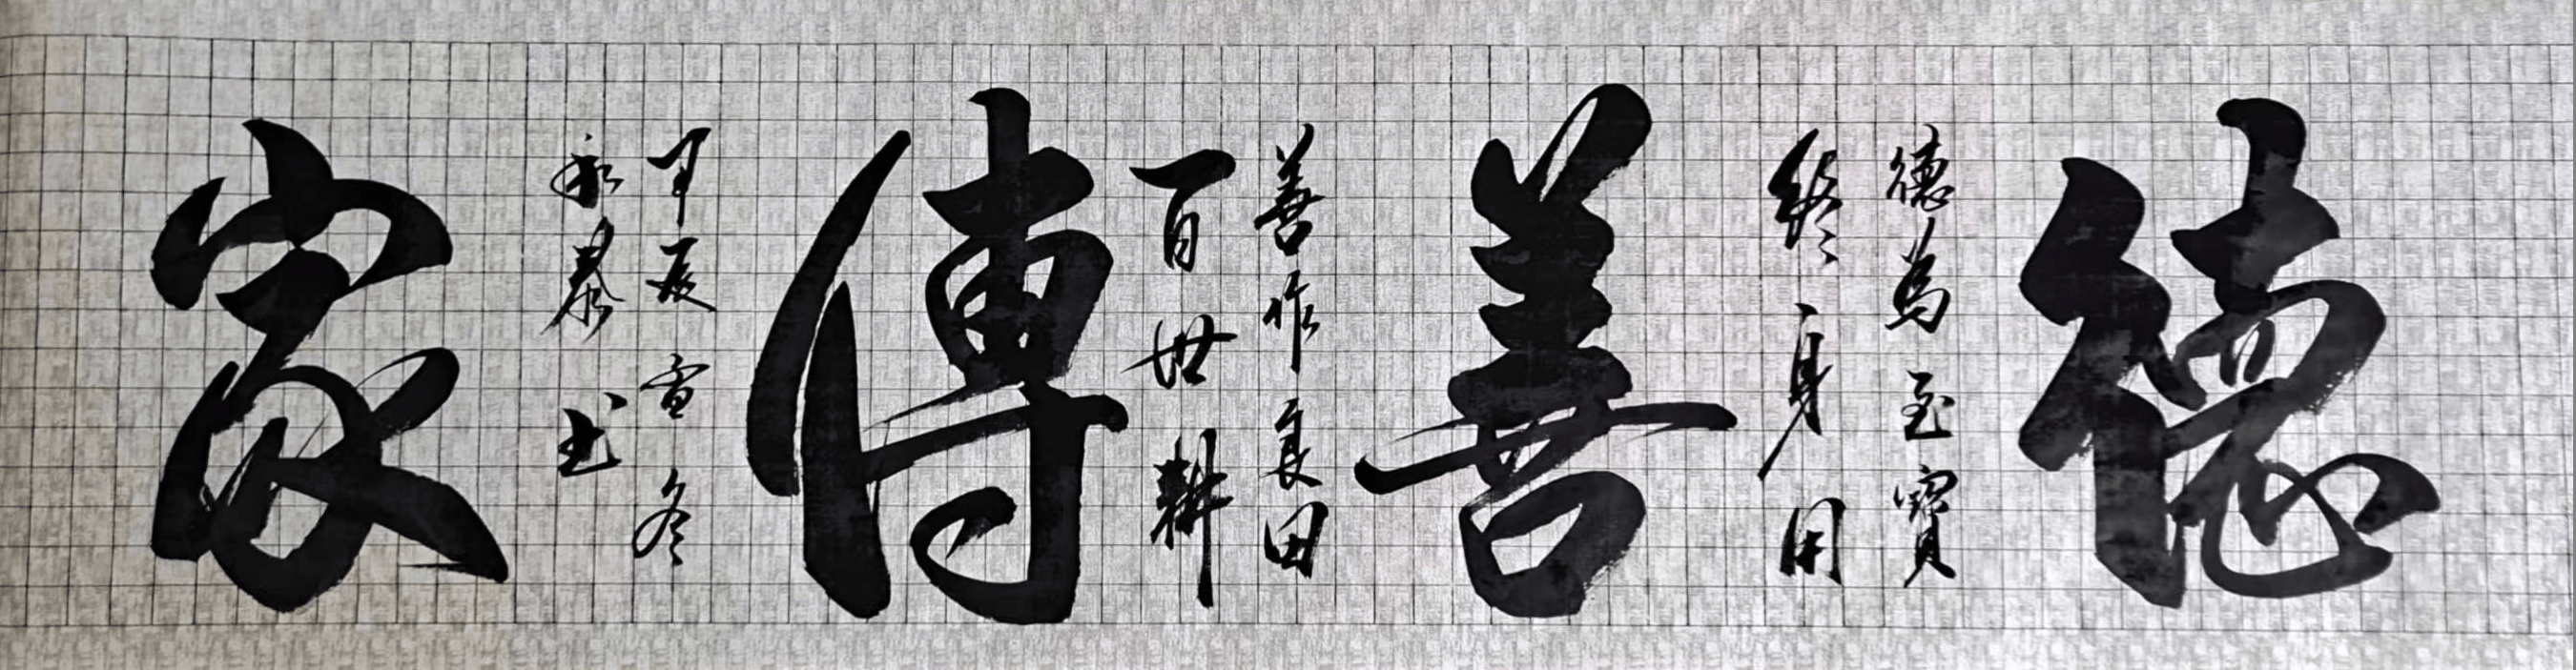 德
德為至寶
終身用
善
善作良田
百世耕
傳
甲辰雪冬
永泰书
家